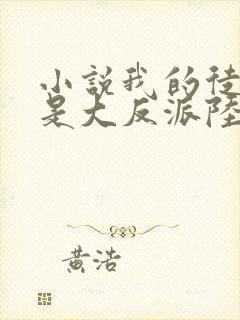 小說我的徒
是大反派陸
黃浩